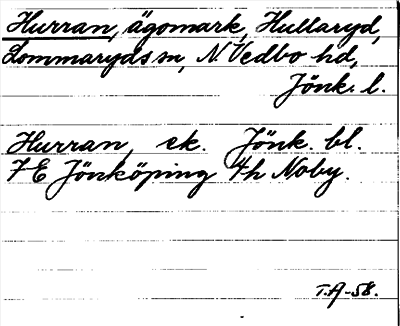 Hurran, ägomark, Hullaryd,
Lommaryds sn, N. Vedbo hd,
Jönk. l.
Hurran, ek. Jönk. bl.
7E Jönköping 4h Noby.
T.A-58.